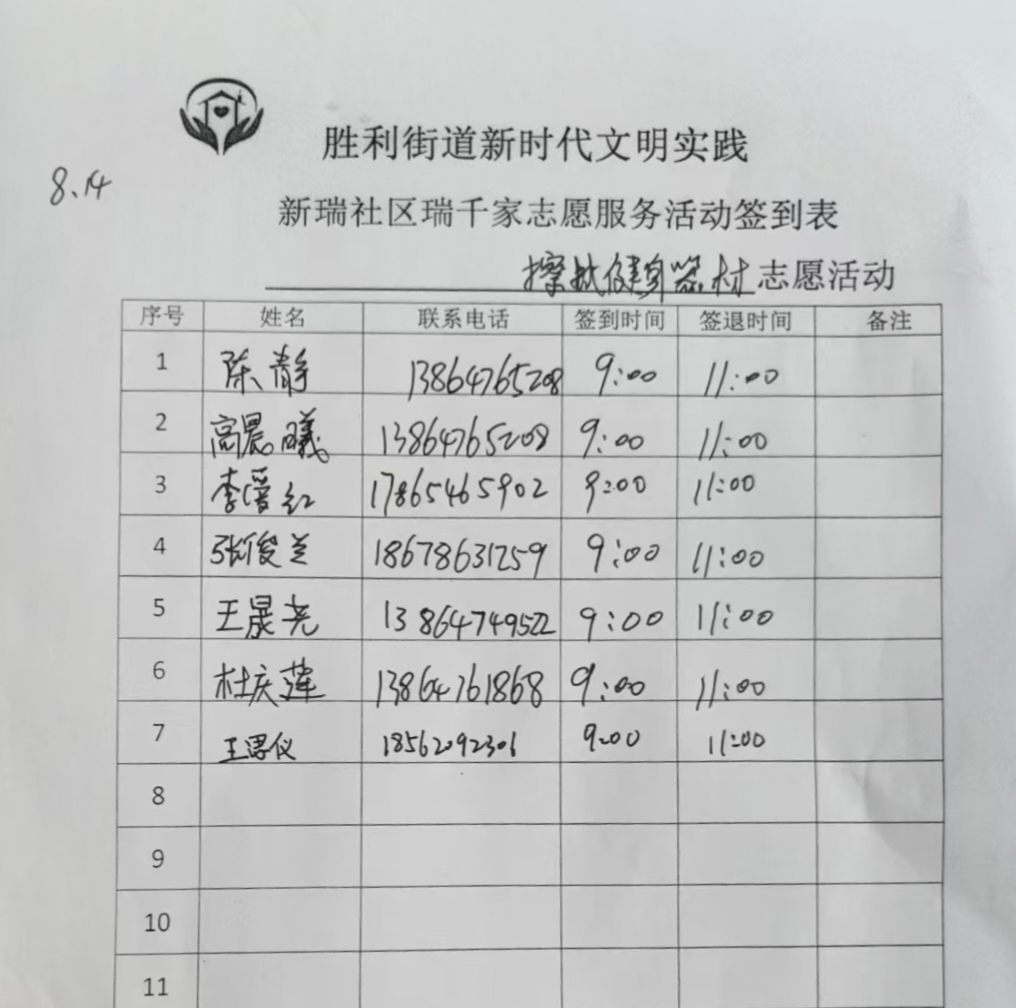 胜利街道新时代文明实践
8.14
新瑞社区瑞千家志愿服务活动签到表
擦拭健身器材志愿活动
序号 姓名 联系电话 签到时间 签退时间 备注
1 陈静 13864765208 9:00 11:00
2 高晨曦 13864765208 9:00 11:00
3 李爱红 17865465902 9:00 11:00
4 张俊兰 18678631259 9:00 11:00
5 王晟尧 13864749522 9:00 11:00
6 杜庆莲 13864761868 9:00 11:00
7 王思仪 18562092301 9:00 11:00
8
9
10
11